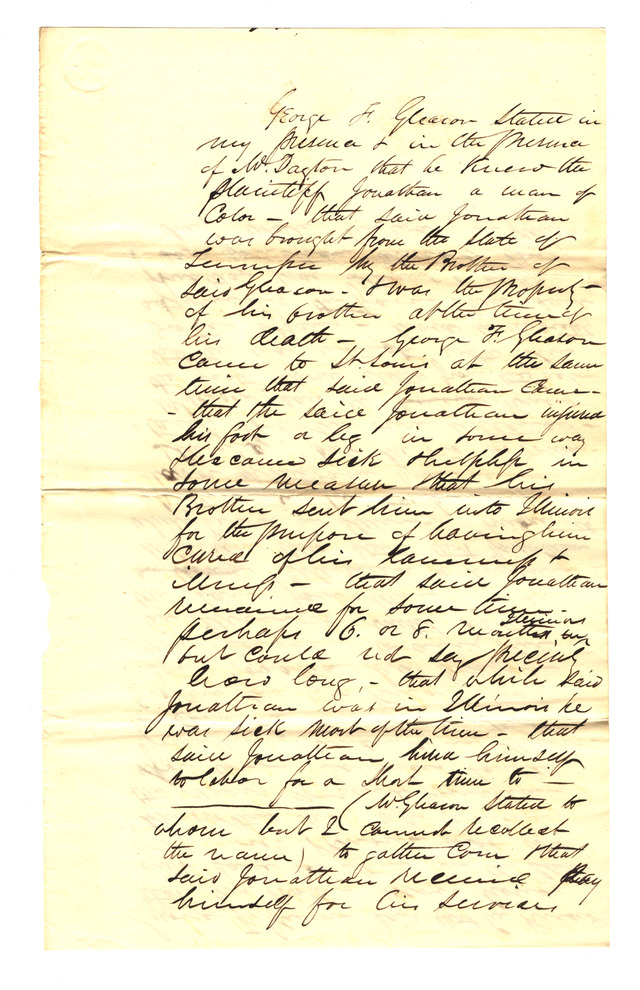 George F. Gleason Stated in
my presence & in the presence
of Mr. Dayton that he knew the
plaintiff Jonathan a man of
Color – that said Jonathan
was brought from the State of
Tennessee by the Brother of
said Gleason – & was the property
of his brother at the time of
his death – George F. Gleason
came to St. Louis at the same
time that said Jonathan came –
– that the said Jonathan injured
his foot or leg in some way
& became sick & helpless in
some measure & that his
Brother sent him into Illinois
for the purpose of having him
cured of his lameness &
illness – that said Jonathan
remained for some time –
perhaps 6. or 8. months, in
Illinois
but could not say precisely
how long, – that while said
Jonathan was in Illinois he
was sick most of the time – that
said Jonathan hired himself
to labor for a short time to –
(Mr. Gleason stated to
whom but I cannot recollect
the name) to gather Corn & that
said Jonathan received pay
himself for his services